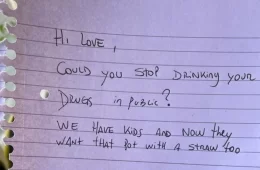 Hi LOVE,
COULD YOU STOP DRINKING YOUR
DRUGS in public?
WE HAVE KIDS AND NOW they
WANT THAT POT WITH A STRAW TOO